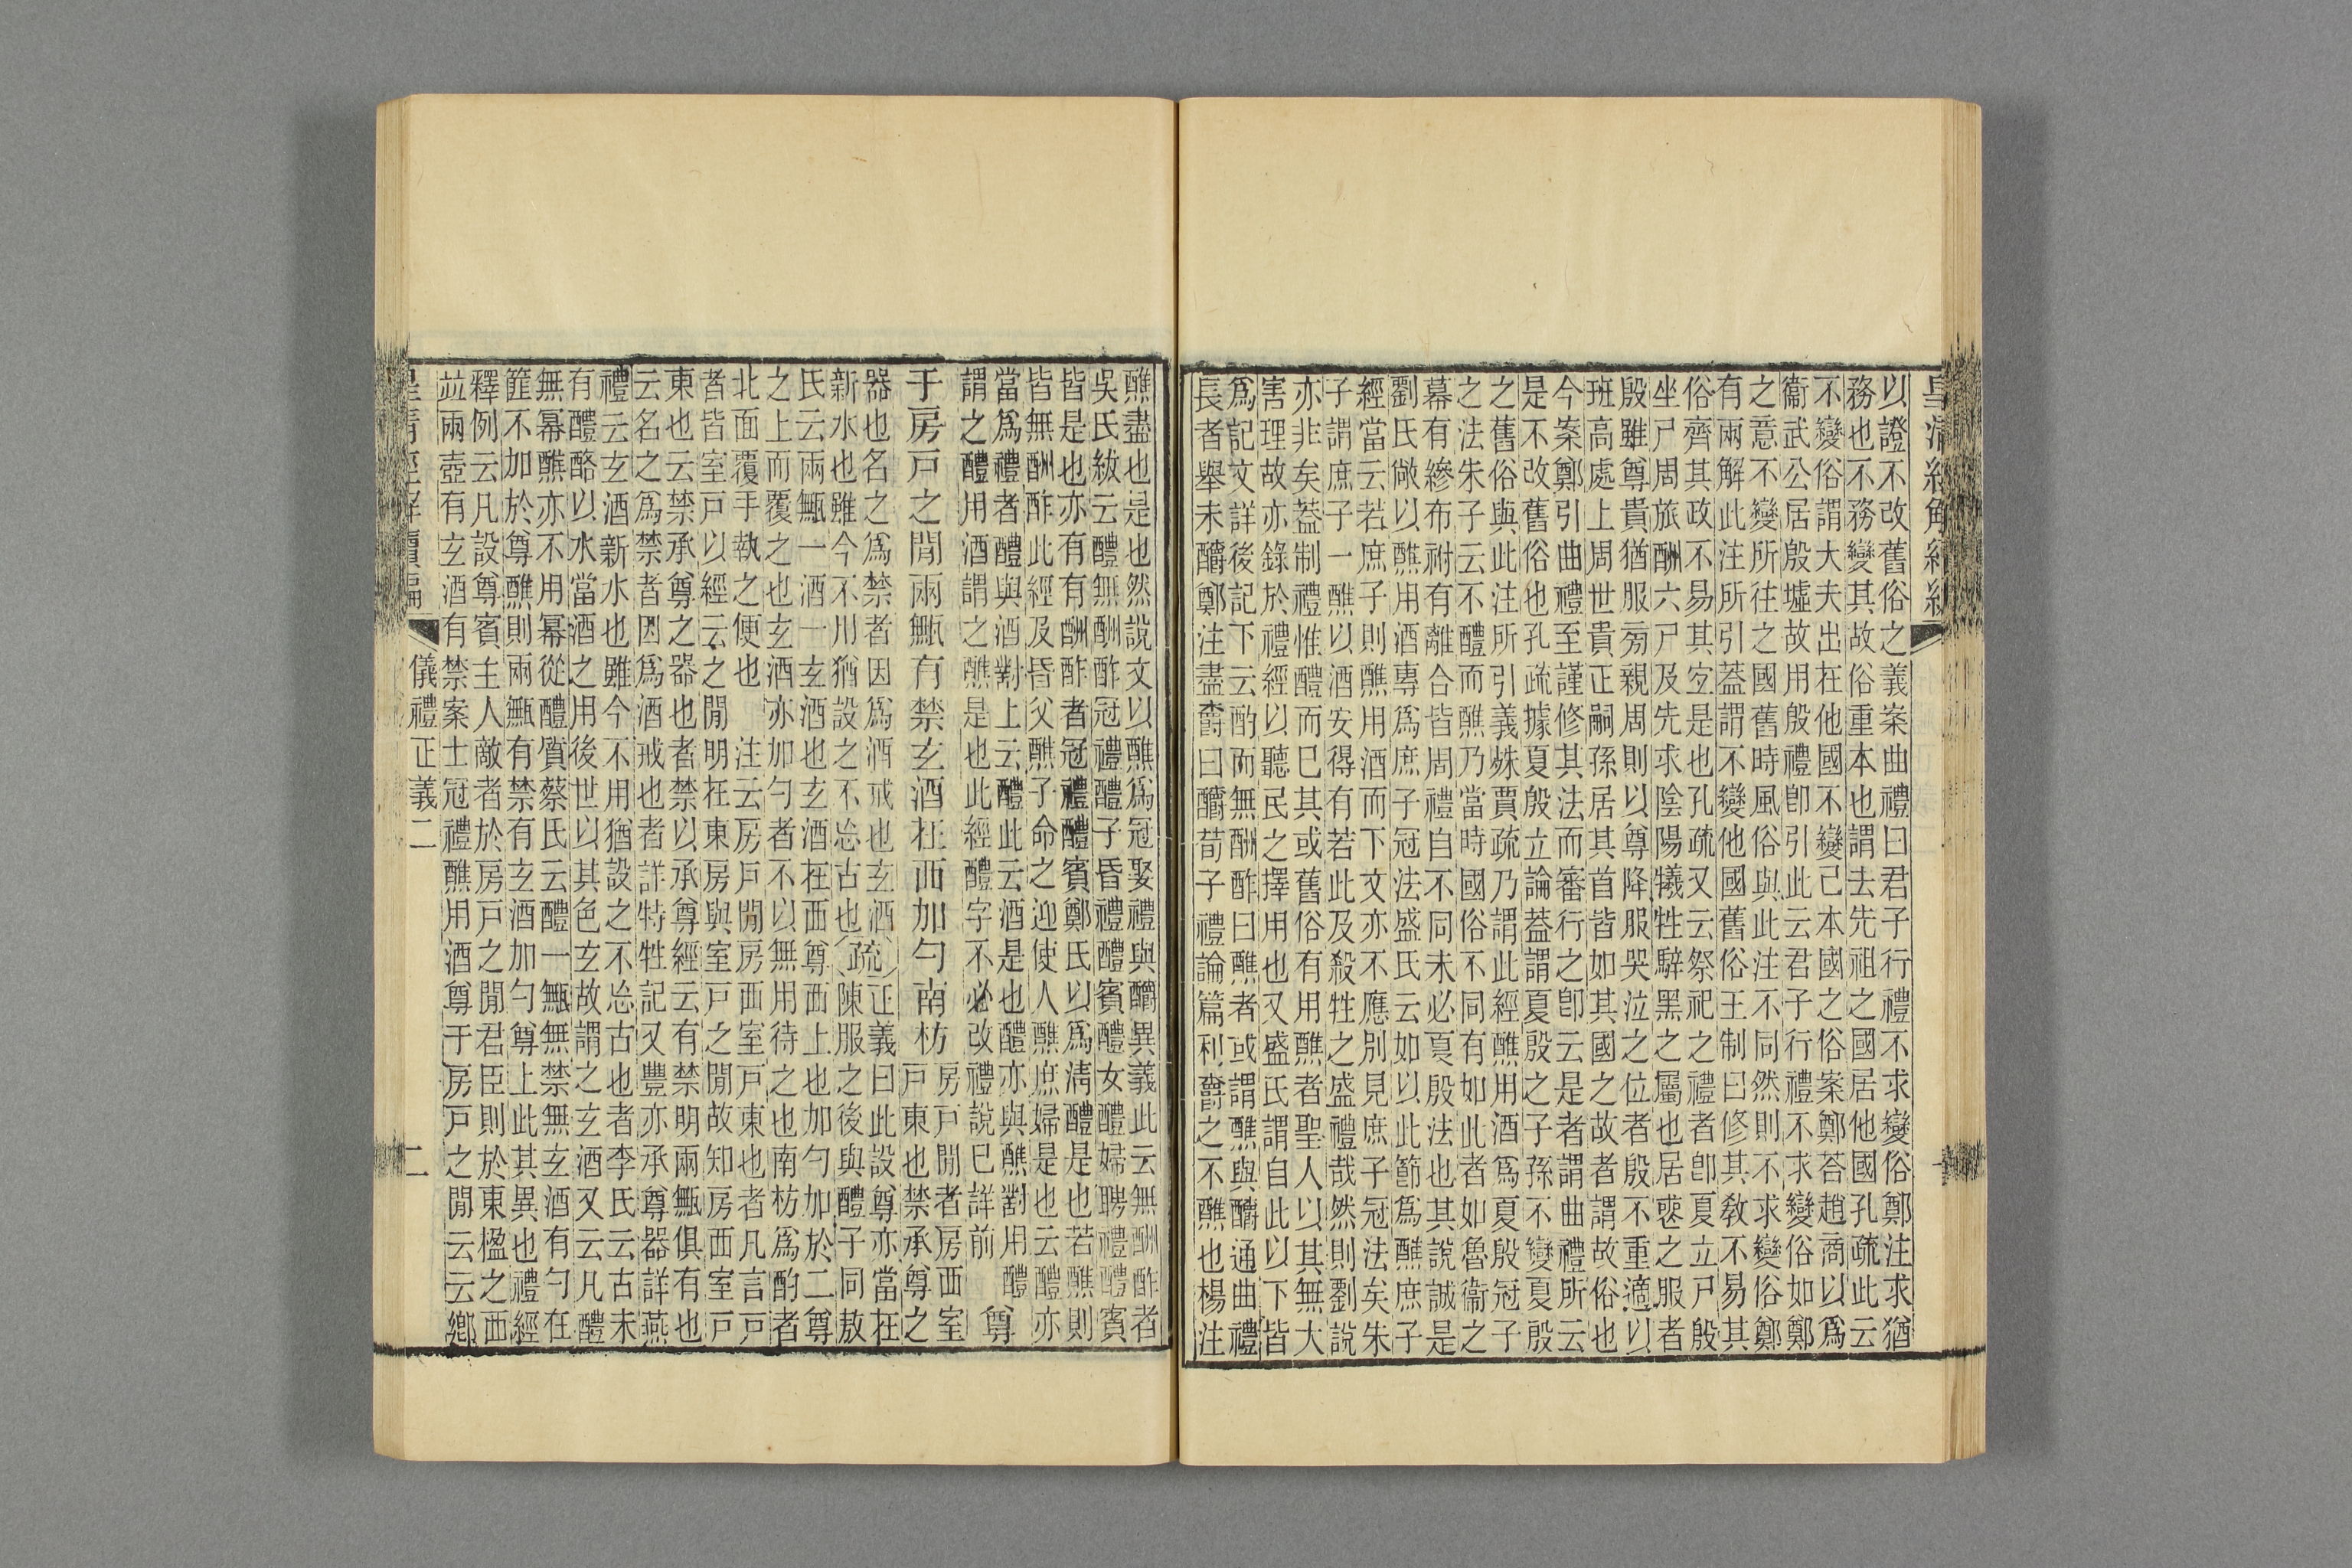 皇清經解續編
以證不改舊俗之義案曲禮曰君子行禮不求變俗鄭注求猶
務也不務變其故俗重本也謂去先祖之國居他國孔疏此云
不變俗謂大夫出在他國不變己本國之俗案鄭荅趙商以爲
衞武公居殷墟故用殷禮卽引此云君子行禮不求變俗如鄭
之意不變所往之國舊時風俗與此注不同然則不求變俗鄭
有兩解此注所引蓋謂不變他國舊俗王制曰修其敎不易其
俗齊其政不易其宐是也孔疏又云祭祀之禮者卽夏立尸殷
坐尸周旅酬六尸及先求陰陽犧牲騂黑之屬也居喪之服者
殷雖尊貴猶服旁親周則以尊降服哭泣之位者殷不重適以
班高處上周世貴正嗣孫居其首皆如其國之故者謂故俗也
今案鄭引曲禮至謹修其法而審行之卽云是者謂曲禮所云
是不改舊俗也孔疏據夏殷立論蓋謂夏殷之子孫不變夏殷
之舊俗與此注所引義殊賈疏乃謂此經醮用酒爲夏殷冠子
之法朱子云不醴而醮乃當時國俗不同有如此者如魯衞之
幕有縿布祔有離合皆周禮自不同未必夏殷法也其說誠是
劉氏敞以醮用酒專爲庶子冠法盛氏云如以此節爲醮庶子
經當云若庶子則醮用酒而下文亦不應別見庶子冠法矣朱
子謂庶子一醮以酒安得有若此及殺牲之盛禮哉然則劉說
亦非矣蓋制禮惟醴而已其或舊俗有用醮者聖人以其無大
害理故亦錄於禮經以聽民之擇用也又盛氏謂自此以下皆
爲記文詳後記下云酌而無酬酢曰醮者或謂醮與釂通曲禮
長者舉未釂鄭注盡爵曰釂荀子禮論篇利爵之不醮也楊注
醮盡也是也然說文以醮爲冠娶禮與釂異義此云無酬酢者
吳氏紱云醴無酬酢冠禮醴子昏禮醴賓醴女醴婦聘禮醴賓
皆是也亦有有酬酢者冠禮醴賓鄭氏以爲淸醴是也若醮則
皆無酬酢此經及昏父醮子命之迎使人醮庶婦是也云醴亦
當爲禮者醴與酒對上云醴此云酒是也醴亦與醮對用醴
謂之醴用酒謂之醮是也此經醴字不必改禮說已詳前　尊
于房戶之閒兩甒有禁玄酒在西加勺南枋房戶閒者房西室
戶東也禁承尊之
器也名之爲禁者因爲酒戒也玄酒
新水也雖今不用猶設之不忘古也疏正義曰此設尊亦當在
陳服之後與醴子同敖
氏云兩甒一酒一玄酒也玄酒在西尊西上也加勺加於二尊
之上而覆之也玄酒亦加勺者不以無用待之也南枋爲酌者
北面覆手執之便也　注云房戶閒房西室戶東也者凡言戶
者皆室戶以經云之閒明在東房與室戶之閒故知房西室戶
東也云禁承尊之器也者禁以承尊經云有禁明兩甒俱有也
云名之爲禁者因爲酒戒也者詳特牲記又豐亦承尊器詳燕
禮云玄酒新水也雖今不用猶設之不忘古也者李氏云古未
有醴酪以水當酒之用後世以其色玄故謂之玄酒又云凡醴
無冪醮亦不用冪從醴質蔡氏云醴一甒無禁無玄酒有勺在
篚不加於尊醮則兩甒有禁有玄酒加勺尊上此其異也禮經
釋例云凡設尊賓主人敵者於房戶之閒君臣則於東楹之西
竝兩壺有玄酒有禁案士冠禮醮用酒尊于房戶之閒云云鄉
皇淸經解續編　儀禮正義二　二